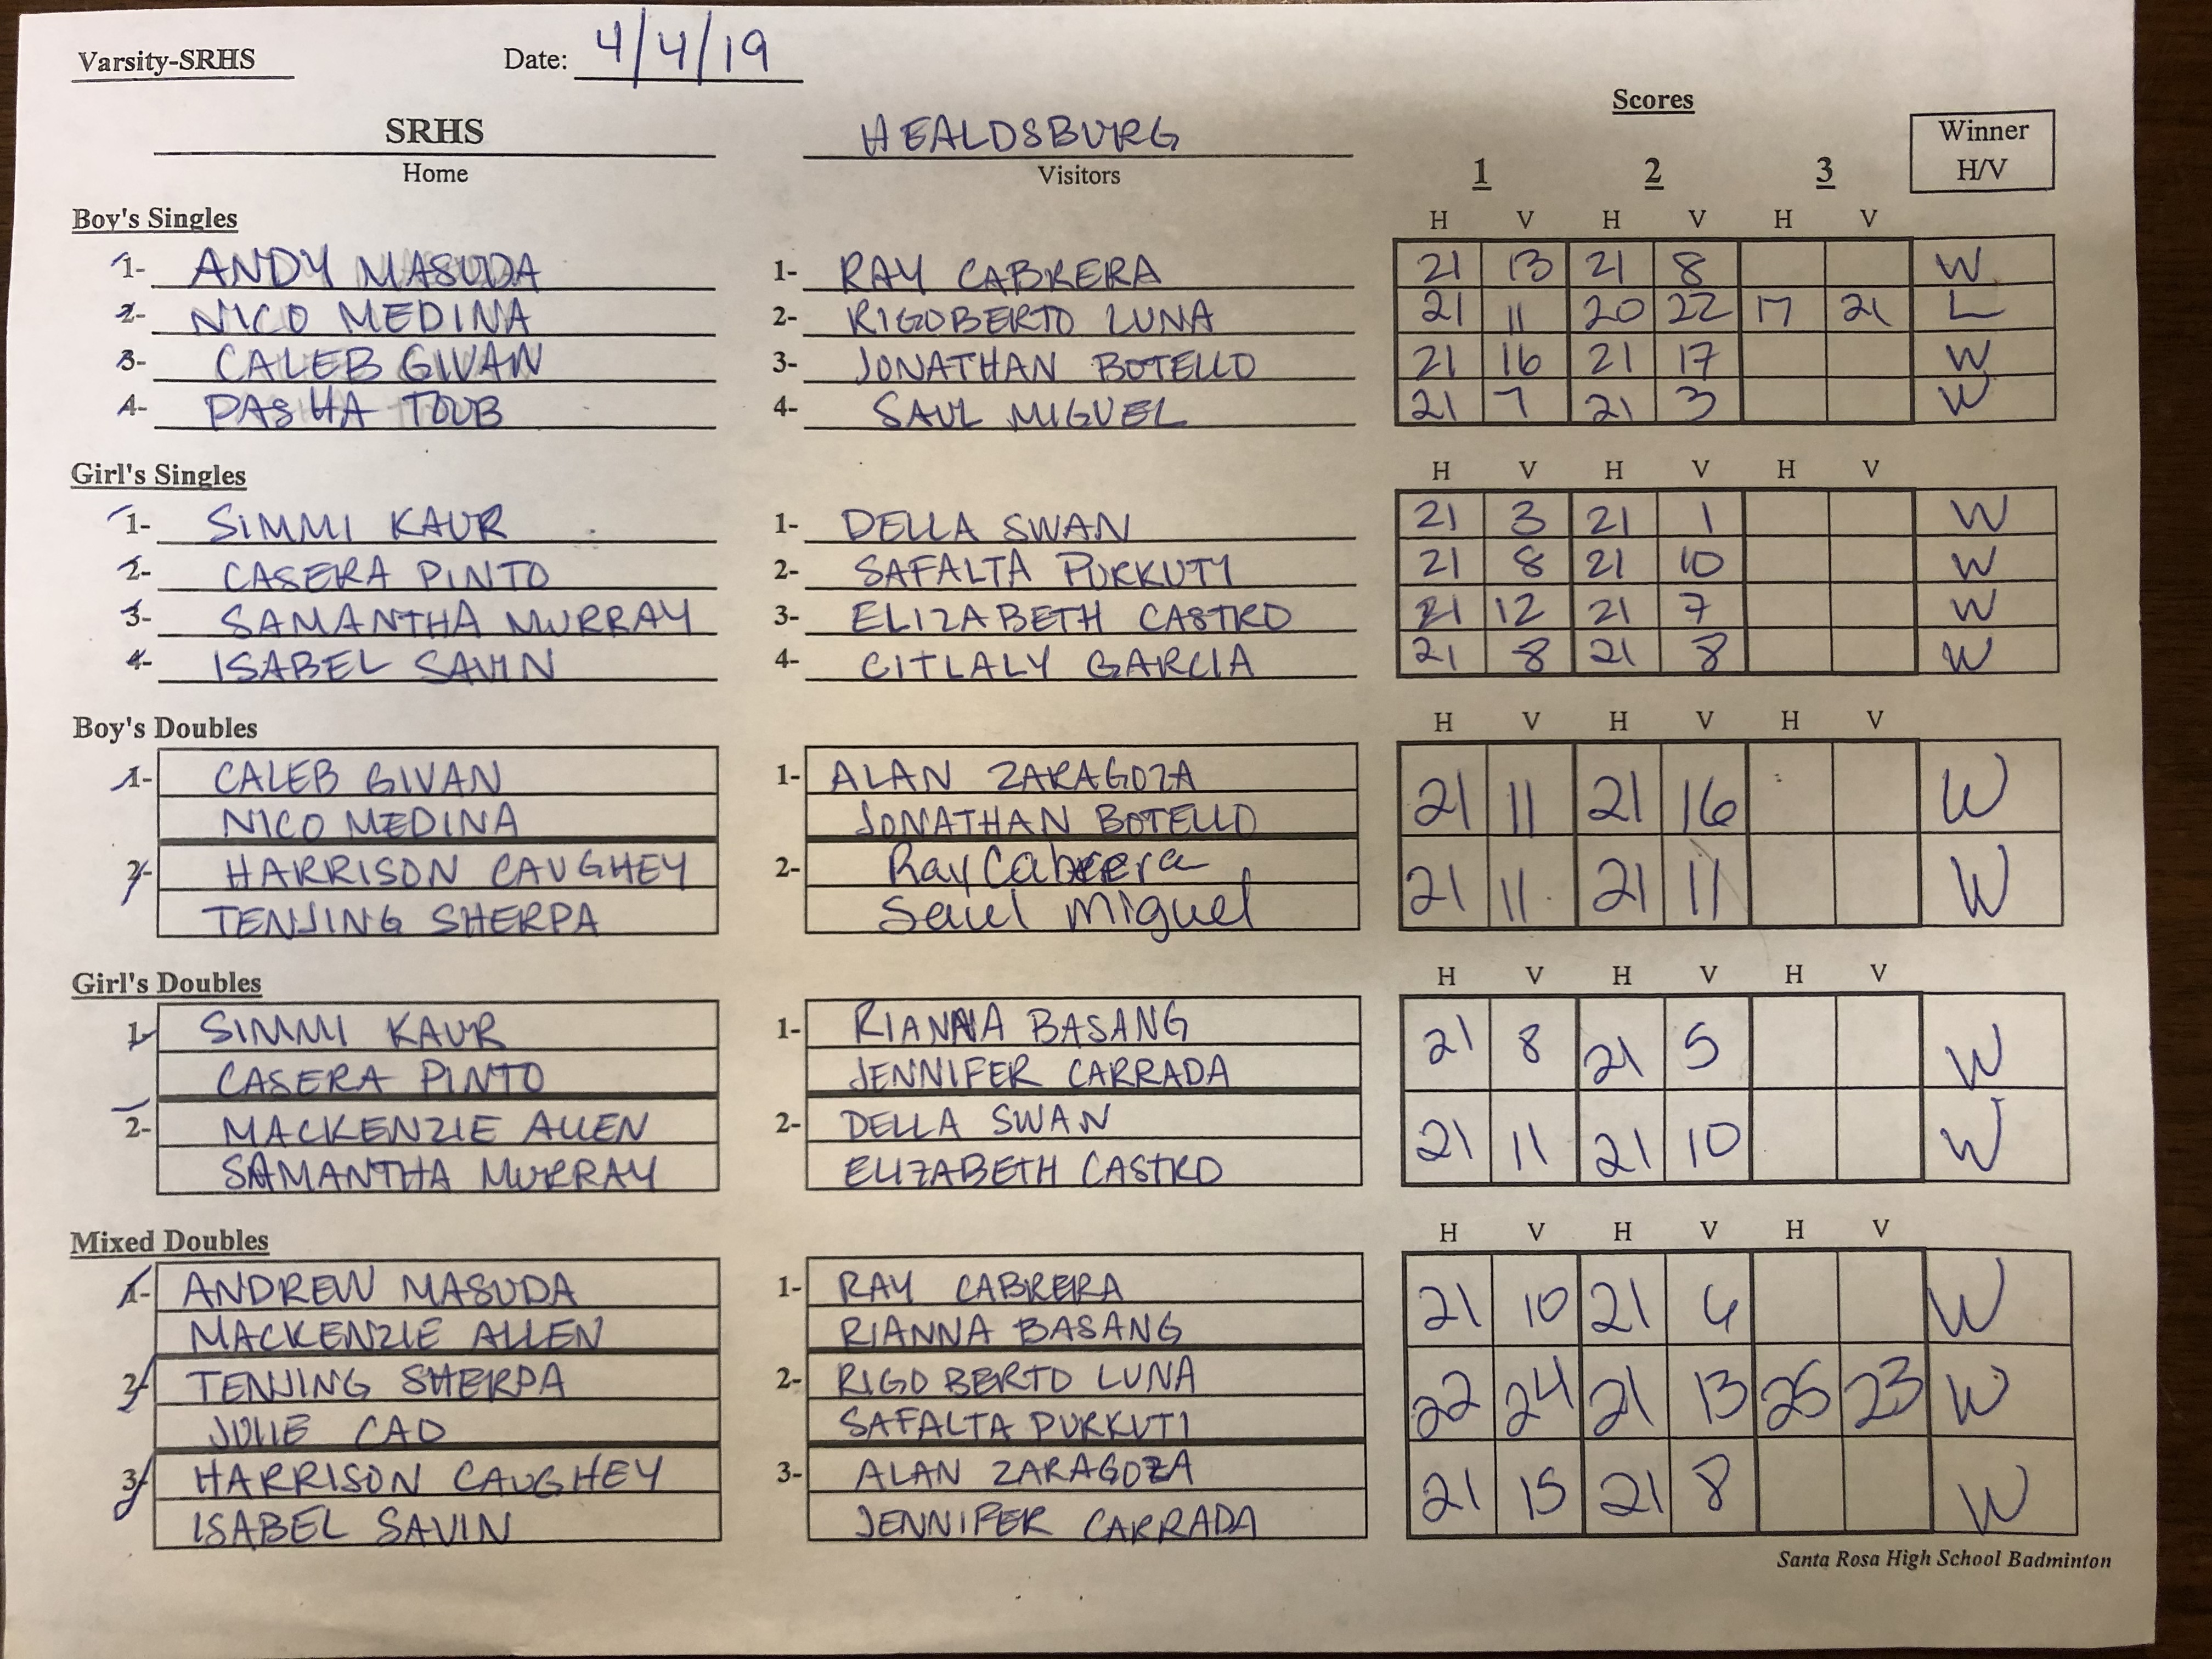 Varsity-SRHS Date: 4/4/19
Scores
SRHS HEALDSBURG Winner
Home Visitors 1 2 3 H/V
Boy's Singles H V H V H V
1- ANDY MASUDA 1- RAY CABRERA 21 13 21 8 W
2- NICO MEDINA 2- RIGOBERTO LUNA 21 11 20 22 17 21 L
3- CALEB GIVAN 3- JONATHAN BOTELLO 21 16 21 17 W
4- PASHA TOUB 4- SAUL MIGUEL 21 7 21 3 W
Girl's Singles H V H V H V
1- SIMMI KAUR 1- DELLA SWAN 21 3 21 1 W
2- CASERA PINTO 2- SAFALTA PURKUTI 21 8 21 10 W
3- SAMANTHA MURRAY 3- ELIZABETH CASTRO 21 12 21 7 W
4- ISABEL SAVIN 4- CITLALY GARCIA 21 8 21 8 W
Boy's Doubles H V H V H V
1- CALEB GIVAN 1- ALAN ZARAGOZA 21 11 21 16 W
NICO MEDINA JONATHAN BOTELLO
2- HARRISON CAUGHEY 2- Ray Cabrera 21 11 21 11 W
TENJING SHERPA Saul Miguel
Girl's Doubles H V H V H V
1- SIMMI KAUR 1- RIANNA BASANG 21 8 21 5 W
CASERA PINTO JENNIFER CARRADA
2- MACKENZIE ALLEN 2- DELLA SWAN 21 11 21 10 W
SAMANTHA MURRAY ELIZABETH CASTRO
Mixed Doubles H V H V H V
1- ANDREW MASUDA 1- RAY CABRERA 21 10 21 6 W
MACKENZIE ALLEN RIANNA BASANG
2- TENJING SHERPA 2- RIGOBERTO LUNA 22 24 21 13 25 23 W
JULIE CAO SAFALTA PURKUTI
3- HARRISON CAUGHEY 3- ALAN ZARAGOZA 21 15 21 8 W
ISABEL SAVIN JENNIFER CARRADA
Santa Rosa High School Badminton